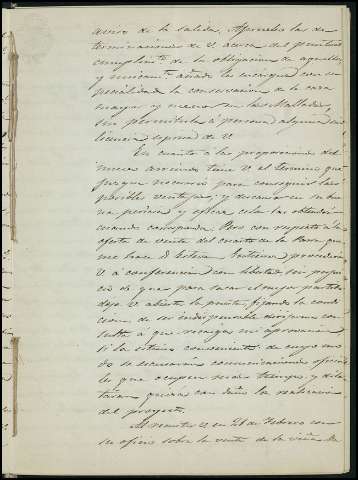 acerca de la salida. Apruebo las de
terminaciones de V. acerca del puntual
cumplimto. de la obligacion de aquellos
y unicamte. añado les encargue con es
pecialidad la conservacion de la caza
mayor y menor en las Malladas,
sin permitirla á persona alguna sin
licencia expresa de V.
En cuanto á las proporciones del
nuevo arriendo tiene V. el termino que
juzgue necesario para conseguir las
posibles ventajas, y descanso en su bue
na pericia y espera esta las obtendra
cuando corresponda. Pero con respecto á la
oferta de venta del cuarto de la Parra que
me hace D. Esteban procederá
V. á conferenciar con libertad sin perjui
cio de que para sacar el mejor partido
deje V. abierta la puerta, fijando la condi
cion de ser indispensable dirigirme con
sulta á que recaiga mi aprovacion
si la estima conveniente: de cuyo mo
do se escusarán comunicaciones oficia
les que ocupen mas tiempo y dila
tarian quizás con daño la realizacion
del proyecto.
Al remitir V. en 26 de Febrero con
su oficio sobre la venta de la viña de